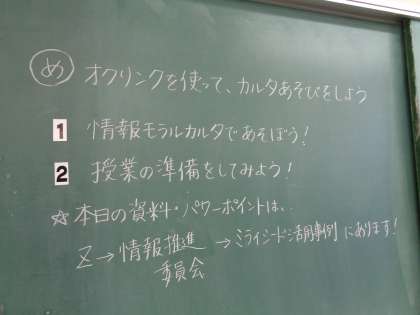 め オクリンクを使って、カルタあそびをしよう
1 情報モラルカルタであそぼう!
2 授業の準備をしてみよう!
☆本日の資料・パワーポイントは、
Z→情報推進委員会→ミライシード活用事例にあります!